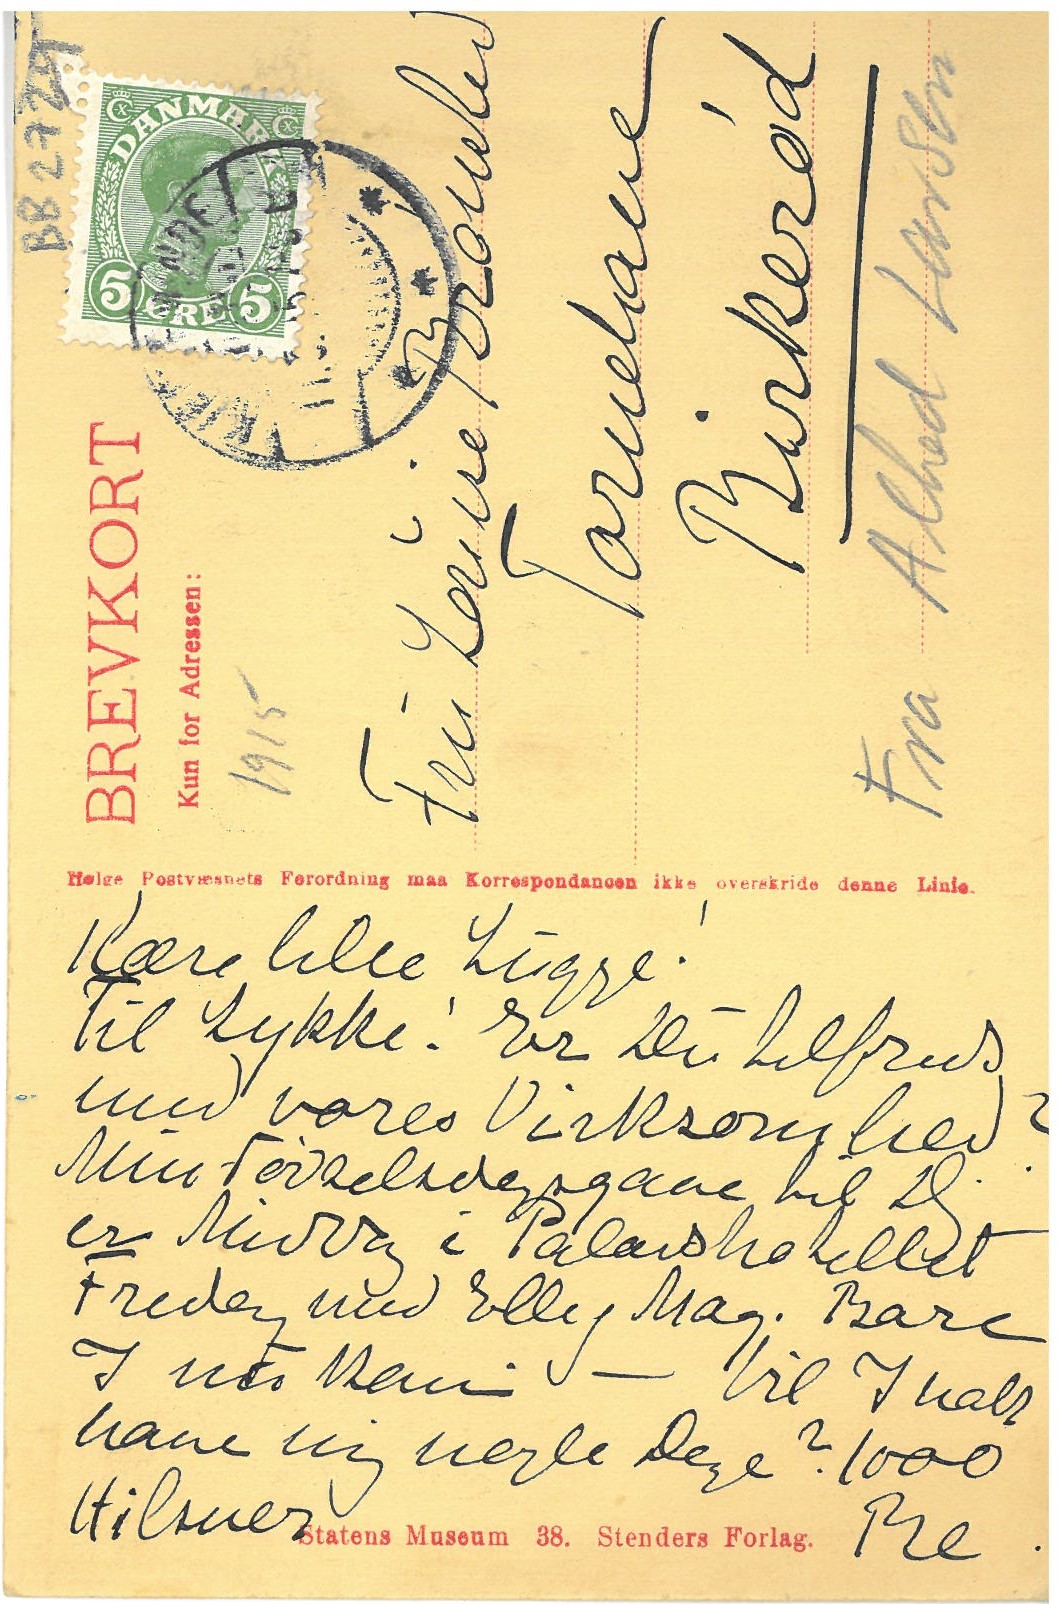 BB 2724
DANMARK
5 ØRE 5
BREVKORT
Kun for Adressen:
1915
Fru Louise Brønsted
Tornehave
Birkerød
Fra Alhed Larsen
Ifølge Postvæsnets Forordning maa Korrespondancen ikke overskride denne Linie.
Kære lille Lugge!
Til Lykke! Er Du tilfreds
med vores Virksomhed?
Min Fødselsdagsgave til D.
er Middag i Palaishotellet
Fredag med Elle, Mag. Bare
I nu kan — Vil I nok
have mig nogle Dage? 1000
Hilsner Be
Statens Museum 38. Stenders Forlag.